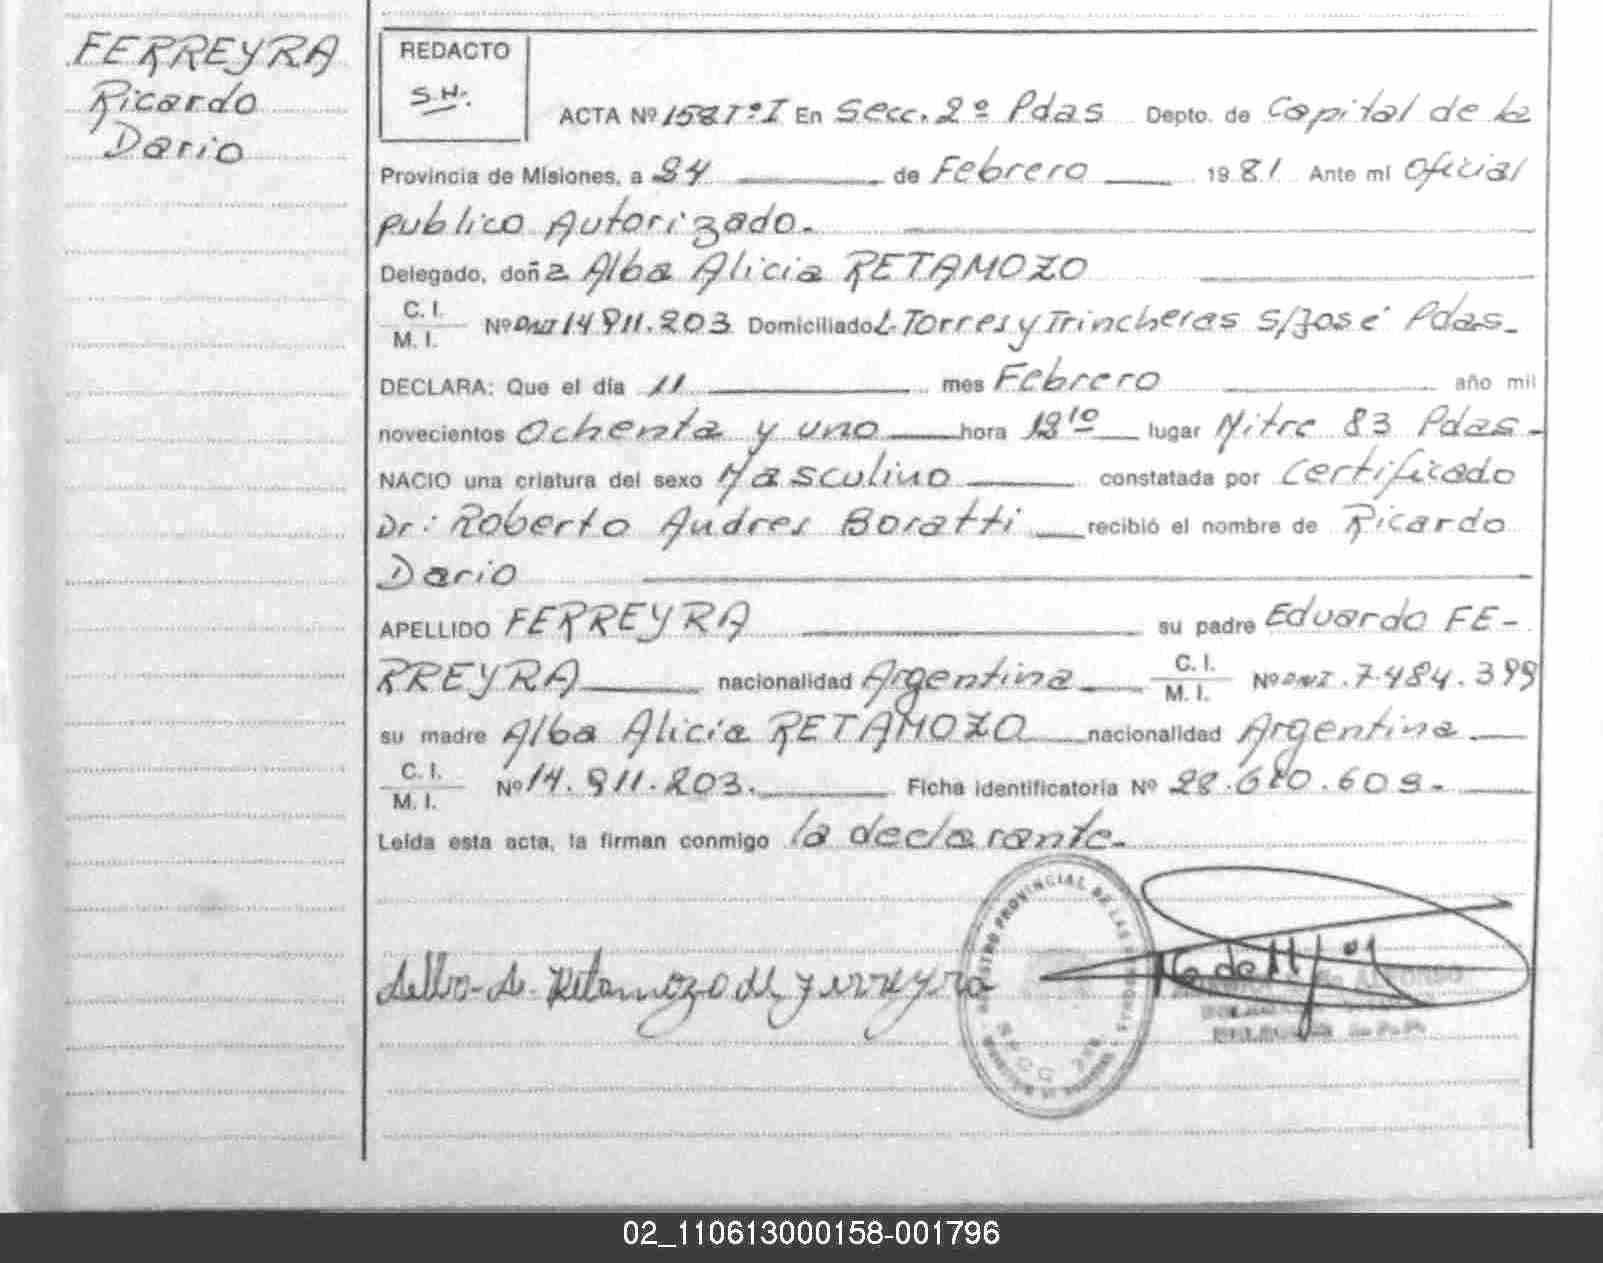 FERREYRA
Ricardo
Dario
REDACTO
S.H.
ACTA Nº 158 Tº I En Secc. 2º Pdas Depto. de Capital de la
Provincia de Misiones, a 24 de Febrero 1981 Ante mi Oficial
publico Autorizado.
Delegado, doña Alba Alicia RETAMOZO
C. I.
M. I. Nº DNI 14.911.203 Domiciliado L. Torres y Trincheras S/José Pdas.
DECLARA: Que el día 11 mes Febrero año mil
novecientos Ochenta y uno hora lugar Mitre 83 Pdas.
NACIO una criatura del sexo Masculino constatada por Certificado
Dr: Roberto Andres Boratti recibió el nombre de Ricardo
Dario
APELLIDO FERREYRA su padre Eduardo FE-
RREYRA nacionalidad Argentina C. I.
M. I. Nº DNI. 7.484.399
su madre Alba Alicia RETAMOZO nacionalidad Argentina.
C. I.
M. I. Nº 14.911.203. Ficha identificatoria Nº
Leída esta acta, la firman conmigo la declarante.
Retamozo de Ferreyra
REGISTRO PROVINCIAL DE LAS
02_110613000158-001796